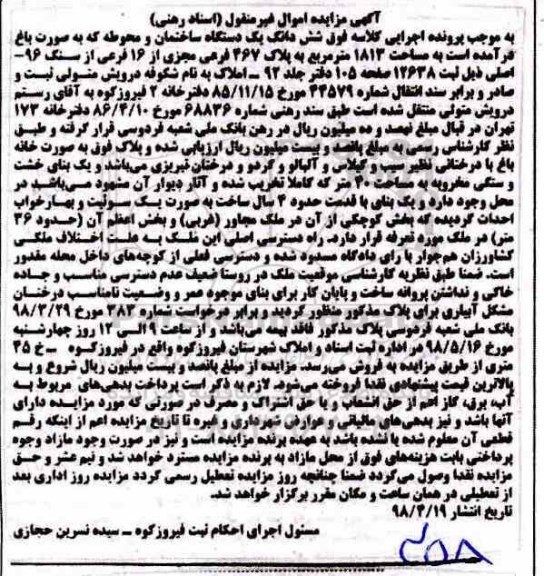 آگهی مزایده اموال غیرمنقول (اسناد رهنی)
به موجب پرونده اجرایی کلاسه فوق شش دانگ یک دستگاه ساختمان و محوطه که به صورت باغ
درآمده است به مساحت ۱۸۱۳ مترمربع به پلاک ۴۶۷ فرعی مجزی از ۱۶ فرعی از سنگ ۹۶-
اصلی ذیل ثبت ۱۲۶۳۸ صفحه ۱۰۵ دفتر جلد ۹۲ ـ املاک به نام شکوفه درویش متولی ثبت و
صادر و برابر سند انتقال شماره ۴۴۵۷۹ مورخ ۸۵/۱۱/۱۵ دفترخانه ۲ فیروزکوه به آقای رستم
درویش متولی منتقل شده است طبق سند رهنی شماره ۶۸۸۳۶ مورخ ۸۶/۴/۱۰ دفترخانه ۱۷۳
تهران در قبال مبلغ نهصد و ده میلیون ریال در رهن بانک ملی شعبه فردوسی قرار گرفته و طبق
نظر کارشناسی رسمی به مبلغ پانصد و بیست میلیون ریال ارزیابی شده و پلاک فوق به صورت خانه
باغ با درختانی نظیر سیب و گیلاس و آلبالو و گردو و درختان تبریزی می‌باشد و یک بنای خشت
و سنگی مخروبه به مساحت ۴۰ متر که کاملا تخریب شده و آثار دیوار آن مشهود می‌باشد در
محل وجود دارد و یک بنای با قدمت حدود ۴ سال ساخت به صورت یک سوئیت و بهارخواب
احداث گردیده که بخش کوچکی از آن در ملک مجاور (غربی) و بخش اعظم آن (حدود ۳۶
متر) در ملک مورد تعرفه قرار دارد. راه دسترسی اصلی این ملک به علت اختلاف ملکی
کشاورزان هم‌جوار با رای دادگاه مسدود شده و دسترسی فعلی از کوچه‌های داخل محله مقدور
است. ضمنا طبق نظریه کارشناسی موقعیت ملک در روستا ضعیف عدم دسترسی مناسب و جاده
خاکی و نداشتن پروانه ساخت و پایان کار برای بنای موجود عمر و وضعیت نامناسب درختان
مشکل آبیاری برای پلاک مذکور منظور گردید و برابر درخواست شماره ۳۸۳ مورخ ۹۸/۳/۲۹
بانک ملی شعبه فردوسی پلاک مذکور فاقد بیمه می‌باشد و از ساعت ۹ الی ۱۲ روز چهارشنبه
مورخ ۹۸/۵/۱۶ در اداره ثبت اسناد و املاک شهرستان فیروزکوه واقع در فیروزکوه ـ خ ۴۵
متری از طریق مزایده به فروش می‌رسد. مزایده از مبلغ پانصد و بیست میلیون ریال شروع و به
بالاترین قیمت پیشنهادی نقدا فروخته می‌شود. لازم به ذکر است پرداخت بدهی‌های مربوط به
آب، برق، گاز اعم از حق انشعاب و یا حق اشتراک و مصرف در صورتی که مورد مزایده دارای
آنها باشد و نیز بدهی‌های مالیاتی و عوارض شهرداری و غیره تا تاریخ مزایده اعم از اینکه رقم
قطعی آن معلوم شده یا نشده باشد به عهده برنده مزایده است و نیز در صورت وجود مازاد وجوه
پرداختی بابت هزینه‌های فوق از محل مازاد به برنده مزایده مسترد خواهد شد و نیم عشر و حق
مزایده نقدا وصول می‌گردد ضمنا چنانچه روز مزایده تعطیل رسمی گردد مزایده روز اداری بعد
از تعطیلی در همان ساعت و مکان مقرر برگزار خواهد شد.
تاریخ انتشار ۹۸/۴/۱۹
مسئول اجرای احکام ثبت فیروزکوه ـ سیده نسرین حجازی